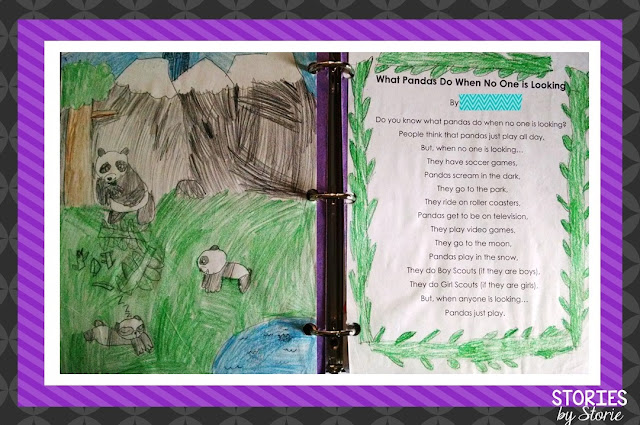 What Pandas Do When No One is Looking
By
Do you know what pandas do when no one is looking?
People think that pandas just play all day,
But, when no one is looking...
They have soccer games.
Pandas scream in the dark.
They go to the park.
They ride on roller coasters.
Pandas get to be on television.
They play video games.
They go to the moon.
Pandas play in the snow.
They do Boy Scouts (if they are boys).
They do Girl Scouts (if they are girls).
But, when anyone is looking...
Pandas just play.
STORIES
by Storie